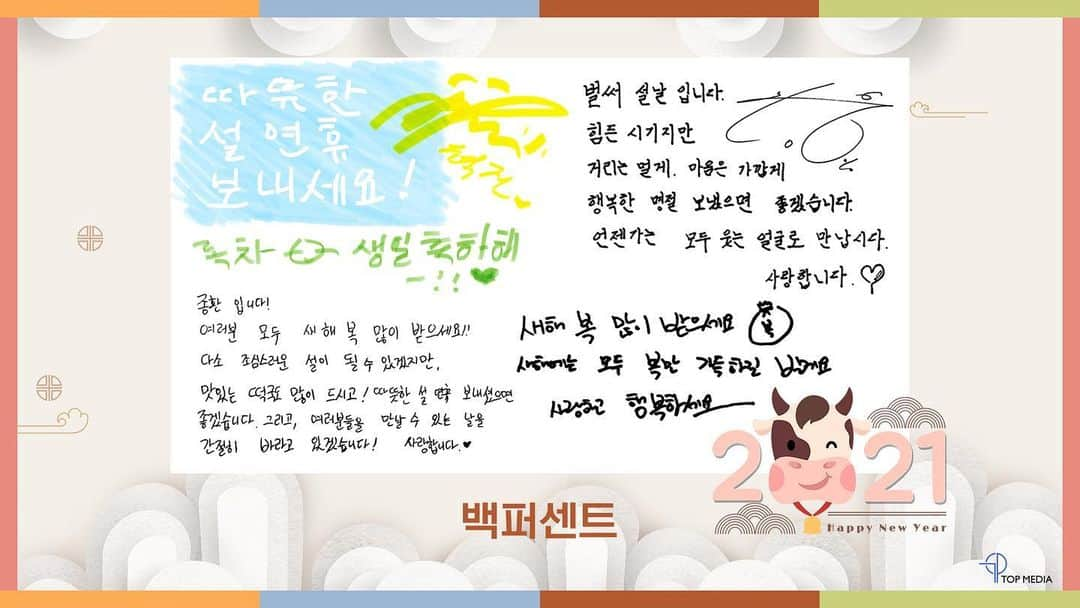 따뜻한
설 연휴
보내세요!
혁진
록차 생일 축하해
~!! ♥
종환 입니다!
여러분 모두 새해 복 많이 받으세요!!
다소 조심스러운 설이 될 수 있겠지만,
맛있는 떡국도 많이 드시고! 따뜻한 설 연휴 보내셨으면
좋겠습니다. 그리고, 여러분들을 만날 수 있는 날을
간절히 바라고 있겠습니다! 사랑합니다.♥
벌써 설날 입니다.
힘든 시기지만
거리는 멀게. 마음은 가깝게
행복한 명절 보냈으면 좋겠습니다.
언젠가는 모두 웃는 얼굴로 만납시다.
사랑합니다. ♡
새해 복 많이 받으세요 福
새해에는 모두 복만 가득하길 바랄게요
사랑하고 행복하세요
2021
Happy New Year
백퍼센트
TOP MEDIA